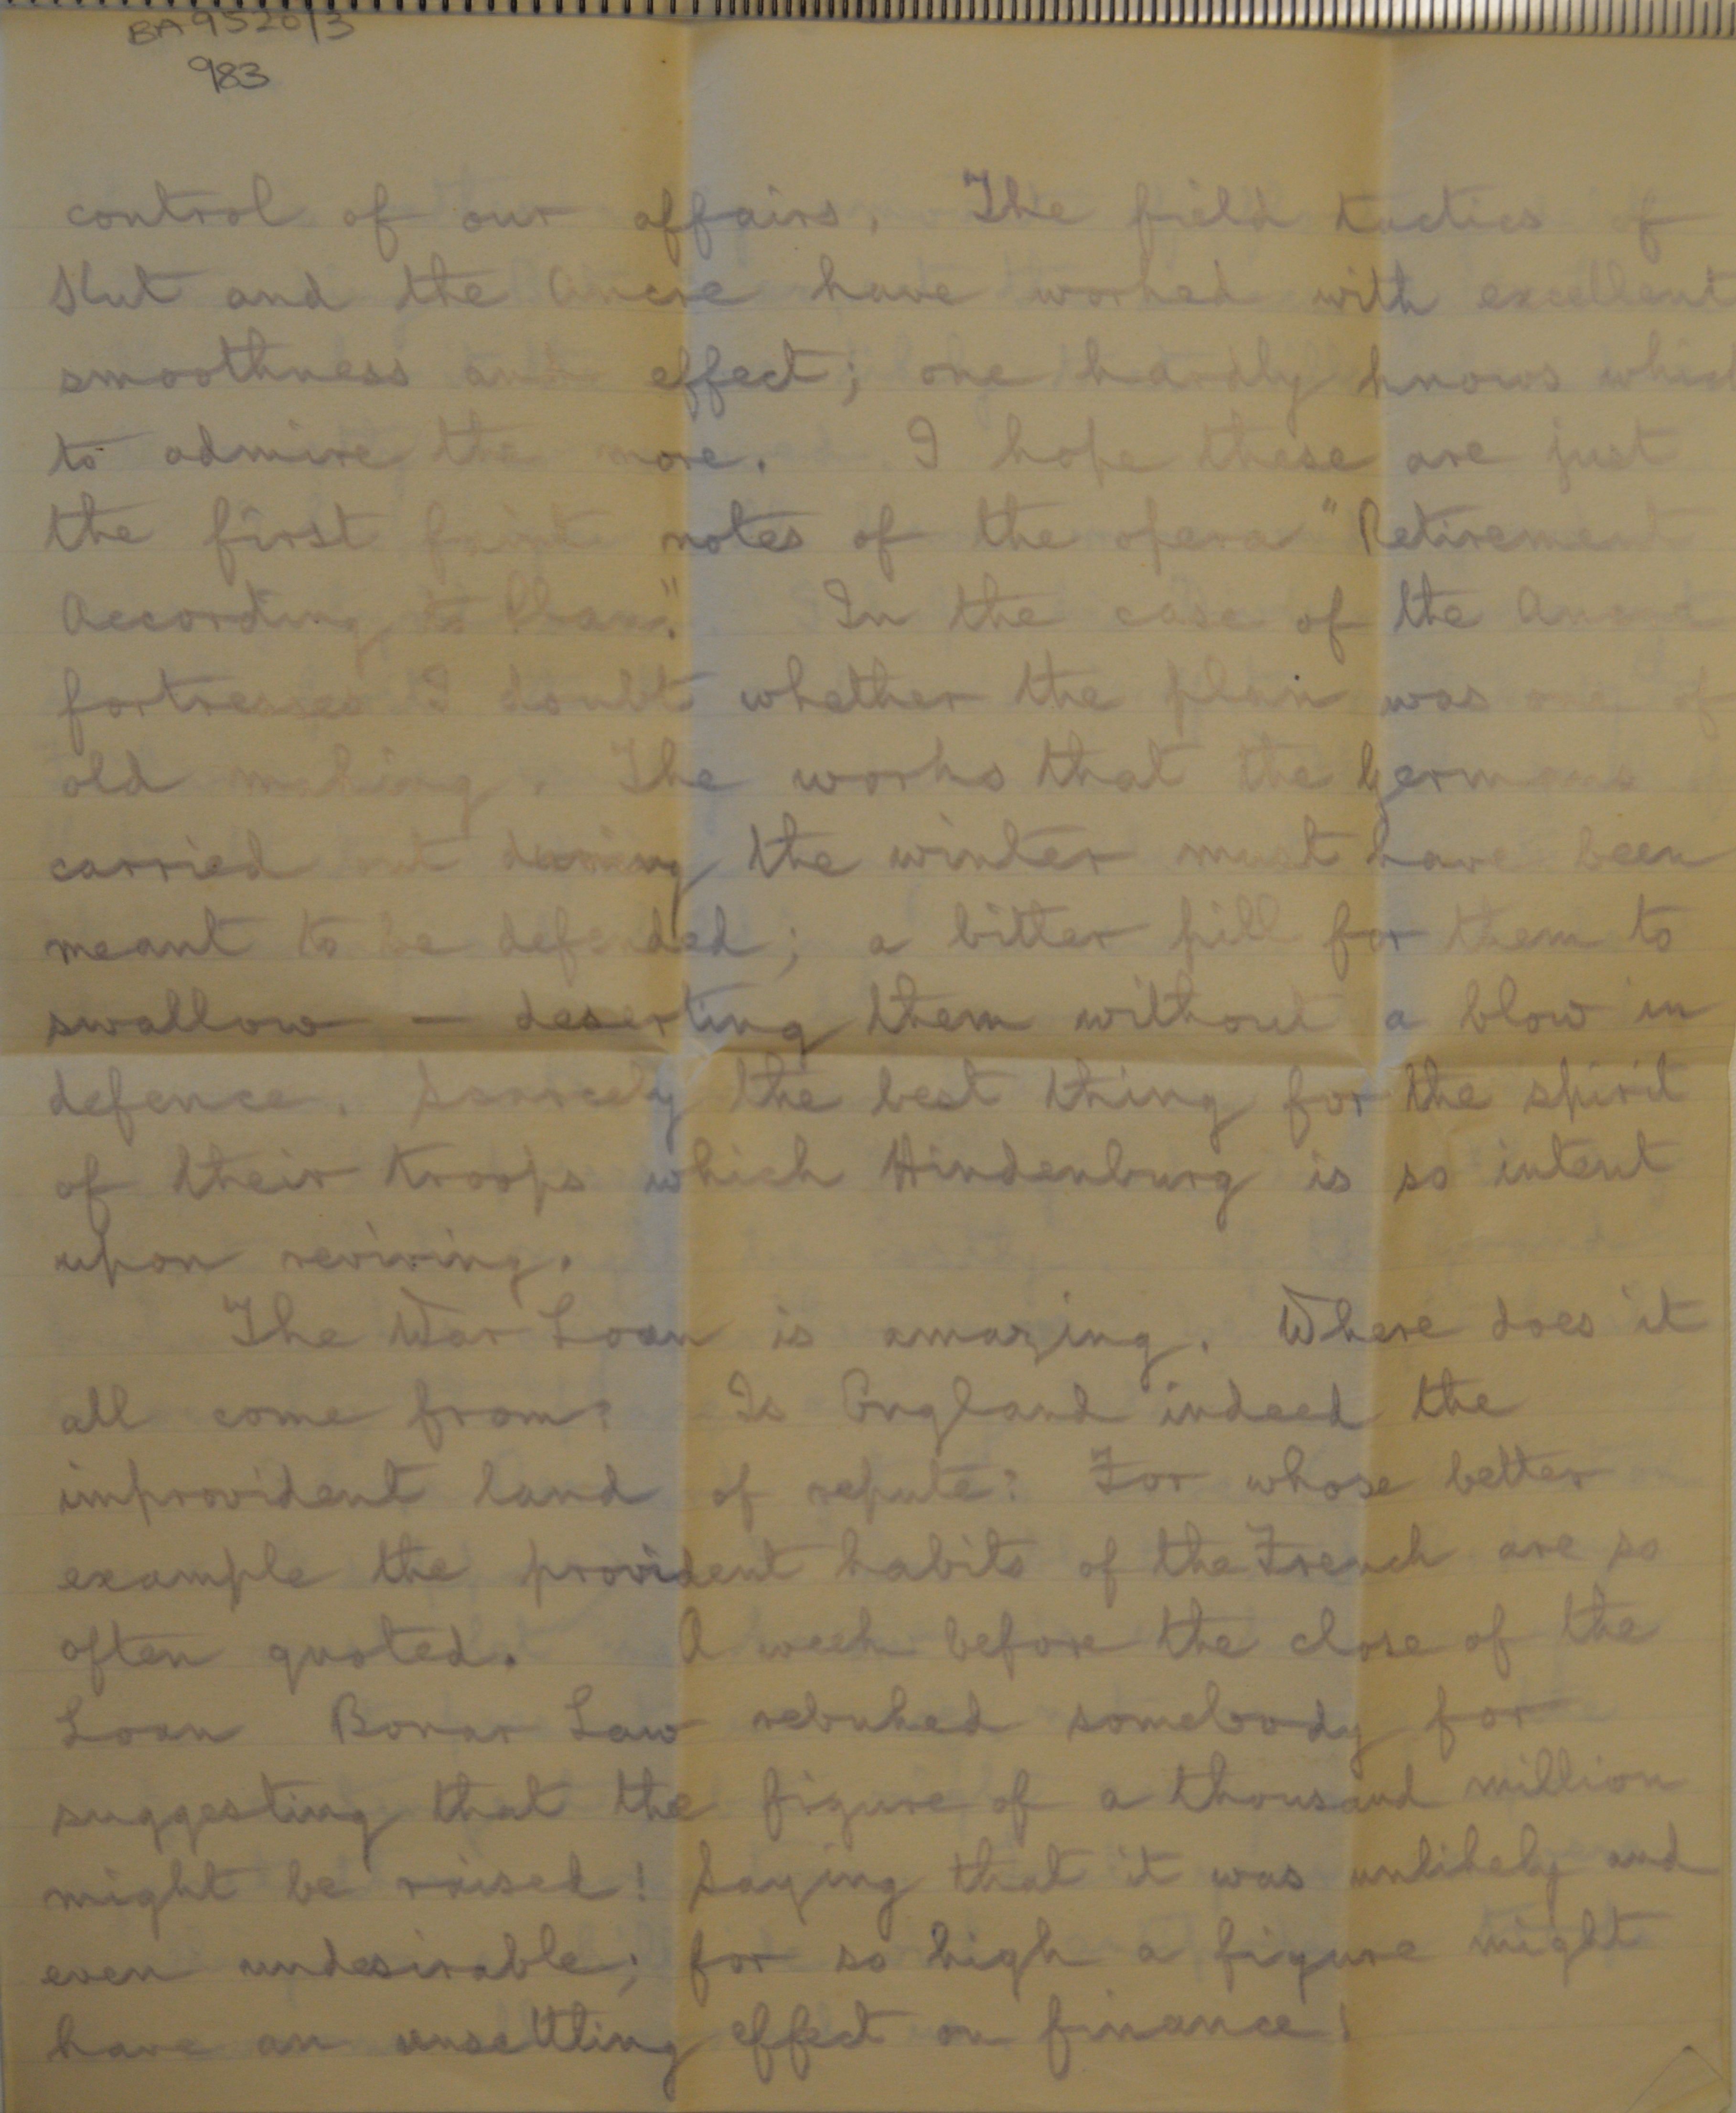 BA9520/3
983
control of our affairs. The field tactics of
Kut and the Ancre have worked with excellent
smoothness and effect; one hardly knows which
to admire the more. I hope these are just
the first faint notes of the opera "Retirement
According to Plan". In the case of the Ancre
fortresses I doubt whether the plan was one of
old making. The works that the Germans
carried out during the winter must have been
meant to be defended; a bitter pill for them to
swallow — deserting them without a blow in
defence. Scarcely the best thing for the spirit
of their troops which Hindenburg is so intent
upon reviving.
The War Loan is amazing. Where does it
all come from? Is England indeed the
improvident land of repute? For whose better
example the provident habits of the French are so
often quoted. A week before the close of the
Loan Bonar Law rebuked somebody for
suggesting that the figure of a thousand million
might be raised! Saying that it was unlikely and
even undesirable; for so high a figure might
have an unsettling effect on finance!